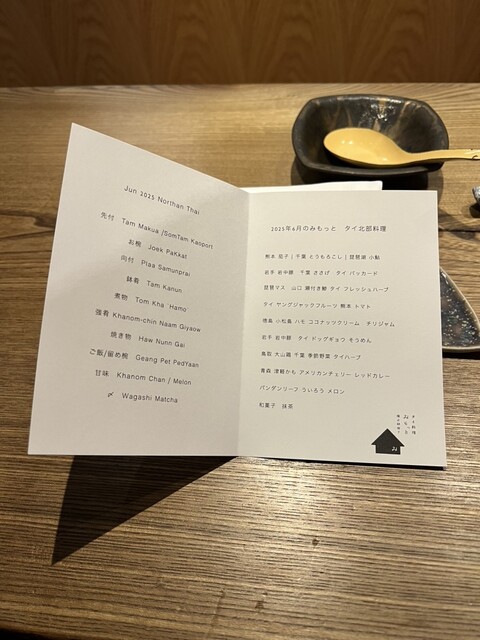 Jun 2025 Northan Thai
先付 Tam Makua /SomTam Kaoport
お椀 Joek PaKkat
向付 Plaa Samunprai
鉢肴 Tam Kanun
煮物 Tom Kha ̈Hamo ̈
強肴 Khanom-chin Naam Giyaow
焼き物 Haw Nunn Gai
ご飯/留め椀 Geang Pet PedYaan
甘味 Khanom Chan / Melon
〆 Wagashi Matcha
2025年6月のみもっと タイ北部料理
熊本 茄子 | 千葉 とうもろこし | 琵琶湖 小鮎
岩手 岩中豚 千葉 ささげ タイ パッカード
琵琶マス 山口 鰻付き鯵 タイ フレッシュハーブ
タイ ヤングジャックフルーツ 熊本 トマト
徳島 小松島 ハモ ココナッツクリーム チリジャム
岩手 岩中豚 タイ ドッグギョウ そうめん
鳥取 大山鶏 千葉 季節野菜 タイハーブ
青森 津軽かも アメリカンチェリー レッドカレー
パンダンリーフ ういろう メロン
和菓子 抹茶
タイ料理
みもっと
み